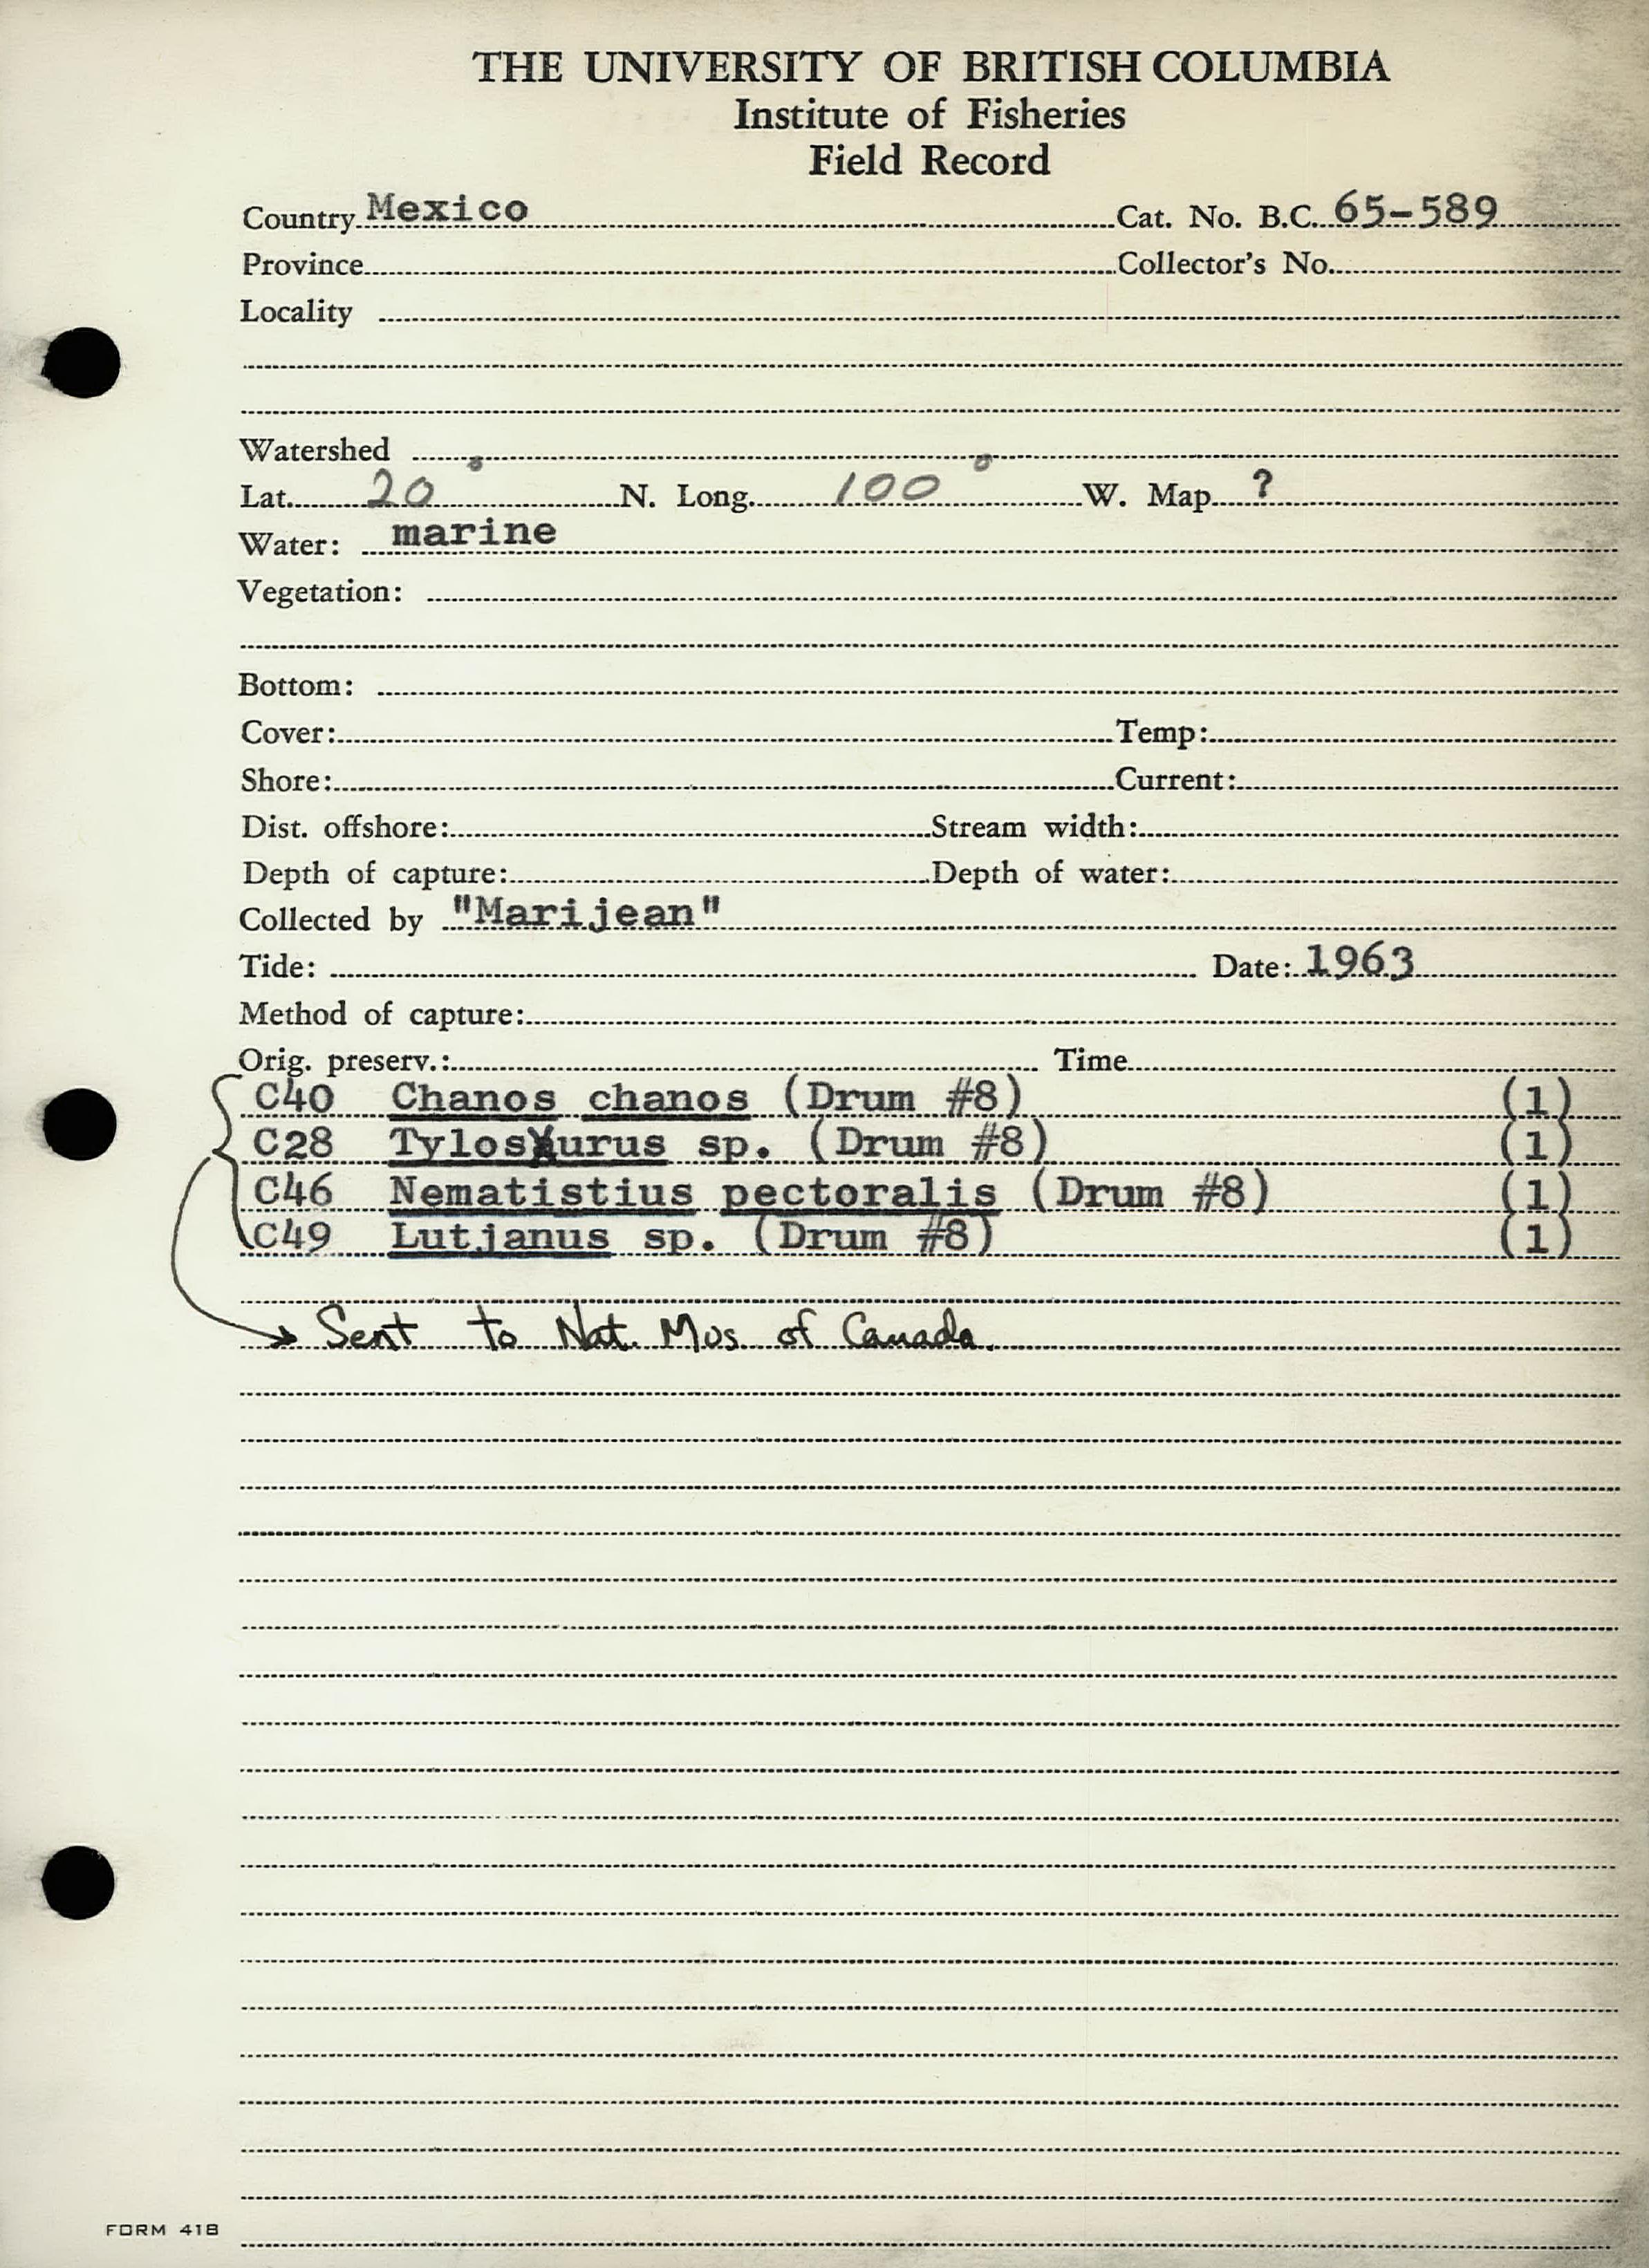 THE UNIVERSITY OF BRITISH COLUMBIA
Institute of Fisheries
Field Record
Country Mexico Cat. No. B.C. 65-589
Province Collector's No.
Locality
Watershed
Lat. 20° N. Long. 100° W. Map ?
Water: marine
Vegetation:
Bottom:
Cover: Temp:
Shore: Current:
Dist. offshore: Stream width:
Depth of capture: Depth of water:
Collected by "Marijean"
Tide: Date: 1963
Method of capture:
Orig. preserv.: Time
C40 Chanos chanos (Drum #8) (1)
C28 Tylosurus sp. (Drum #8) (1)
C46 Nematistius pectoralis (Drum #8) (1)
C49 Lutjanus sp. (Drum #8) (1)
→ Sent to Nat. Mus. of Canada.
FORM 418